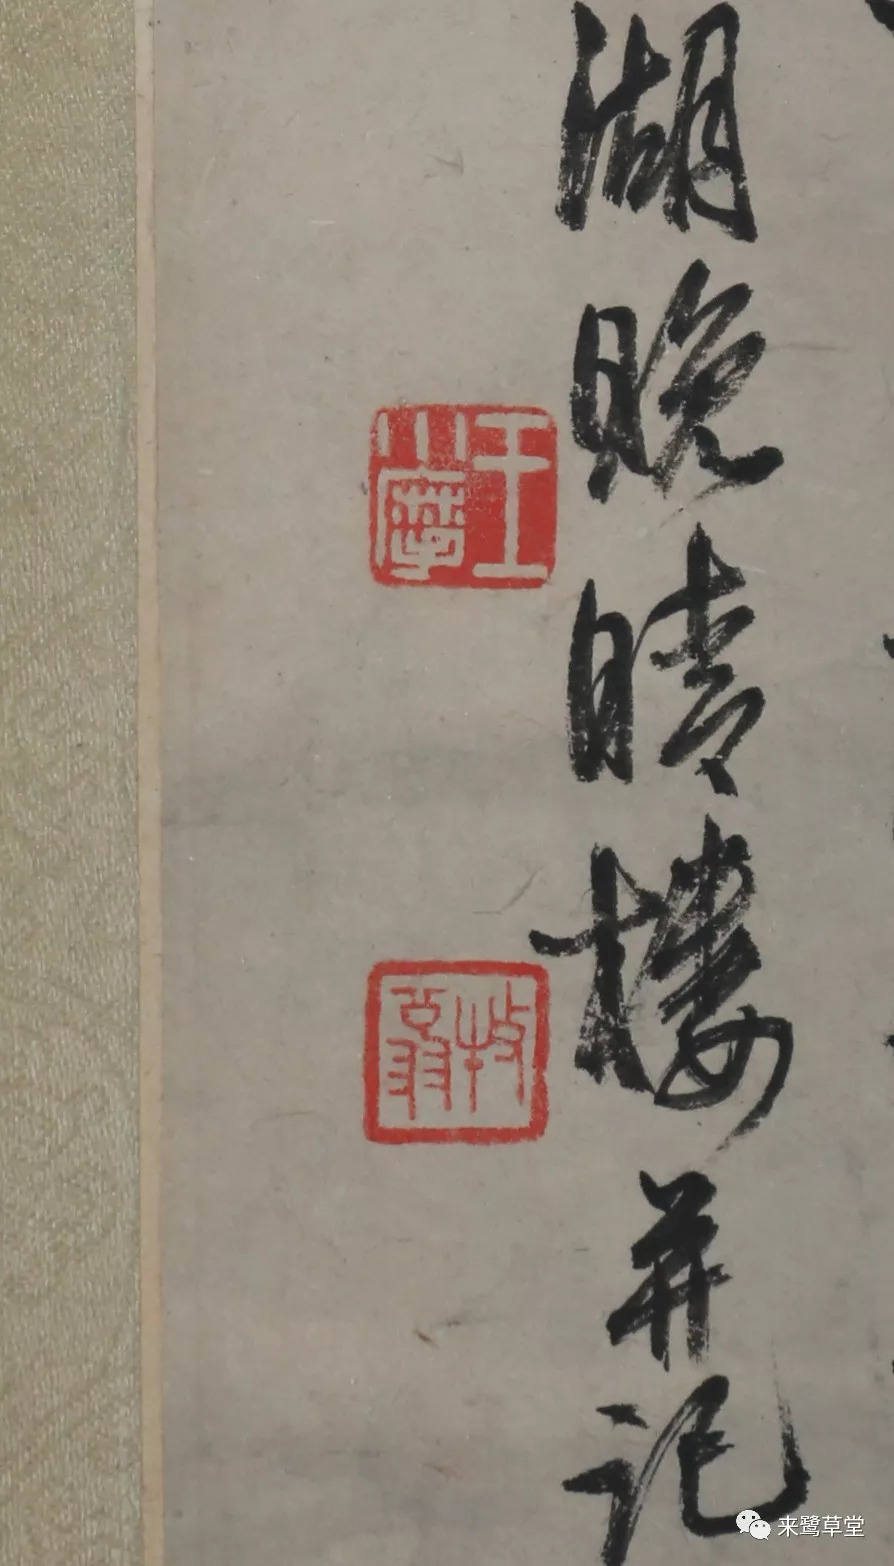 湖晚晴樓并記
王小摩
牧翁
来鹭草堂